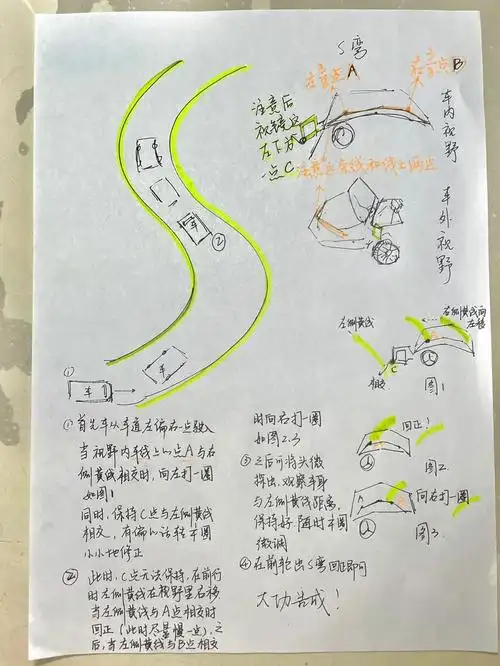 S弯
A
B
注意后
视镜这
左下方
一点C
注意这条线和线上两点
车内视野
车外视野
左侧黄线
右侧黄线向
左移
相交
C
图1
①
车
②
车
车
①首先车从车道左偏右一点驶入
当视野内车线上的点A与右
侧黄线相交时,向左打一圈
如图1
同时,保持C点与左侧黄线
相交,有偏的话轻半圈
小小地修正
②此时,C点无法保持,在前行
时左侧黄线在视野里右移
当左侧黄线与A点相交时
回正(此时尽量慢一些),之
后,当左侧黄线与B点相交
时向右打一圈
如图2.3
③之后可将头微
探出,观察车身
与左侧黄线距离,
保持好随时半圈
微调
④在前轮出S弯回正即可
大功告成!
回正!
图2.
向右打一圈
图3.